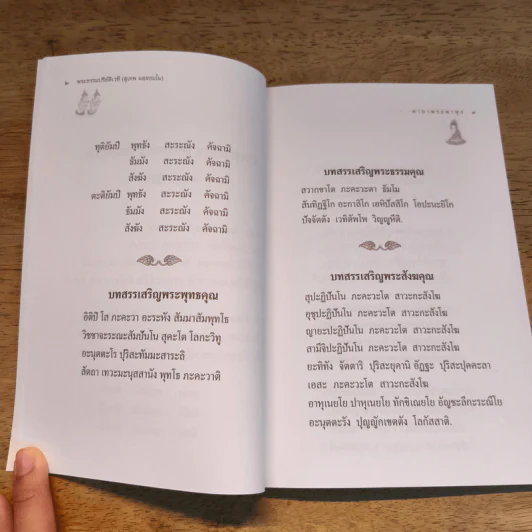 ๒ พระธรรมปริยัติเวที (สุเทพ
ทุติยัมปี พุทธัง สะระณัง คัจฉามิ
ธัมมัง สะระณัง คัจฉามิ
สังฆัง สะระณัง คัจฉามิ
ตะติยัมปี พุทธัง สะระณัง คัจฉามิ
ธัมมัง สะระณัง คัจฉามิ
สังฆัง สะระณัง คัจฉามิ
บทสรรเสริญพระพุทธคุณ
อิติปิ โส ภะคะวา อะระหัง สัมมาสัมพุทโธ
วิชชาจะระณะสัมปันโน สุคะโต โลกะวิทู
อะนุตตะโร ปุริสะทัมมะสาระถิ
สัตถา เทวะมะนุสสานัง พุทโธ ภะคะวาติ
๓
บทสรรเสริญพระธรรมคุณ
สวากขาโต ภะคะวะตา ธัมโม
สันทิฏฐิโก อะกาลิโก เอหิปัสสิโก โอปะนะยิโก
ปัจจัตตัง เวทิตัพโพ วิญญูหีติ.
บทสรรเสริญพระสังฆคุณ
สุปะฏิปันโน ภะคะวะโต สาวะกะสังโฆ
อุชุปะฏิปันโน ภะคะวะโต สาวะกะสังโฆ
ญายะปะฏิปันโน ภะคะวะโต สาวะกะสังโฆ
สามีจิปะฏิปันโน ภะคะวะโต สาวะกะสังโฆ
ยะทิทัง จัตตาริ ปุริสะยุคานิ อัฏฐะ ปุริสะปุคคะลา
เอสะ ภะคะวะโต สาวะกะสังโฆ
อาหุเนยโย ปาหุเนยโย ทักขิเณยโย อัญชะลีกะระณีโย
อะนุตตะรัง ปุญญักเขตตัง โลกัสสาติ.